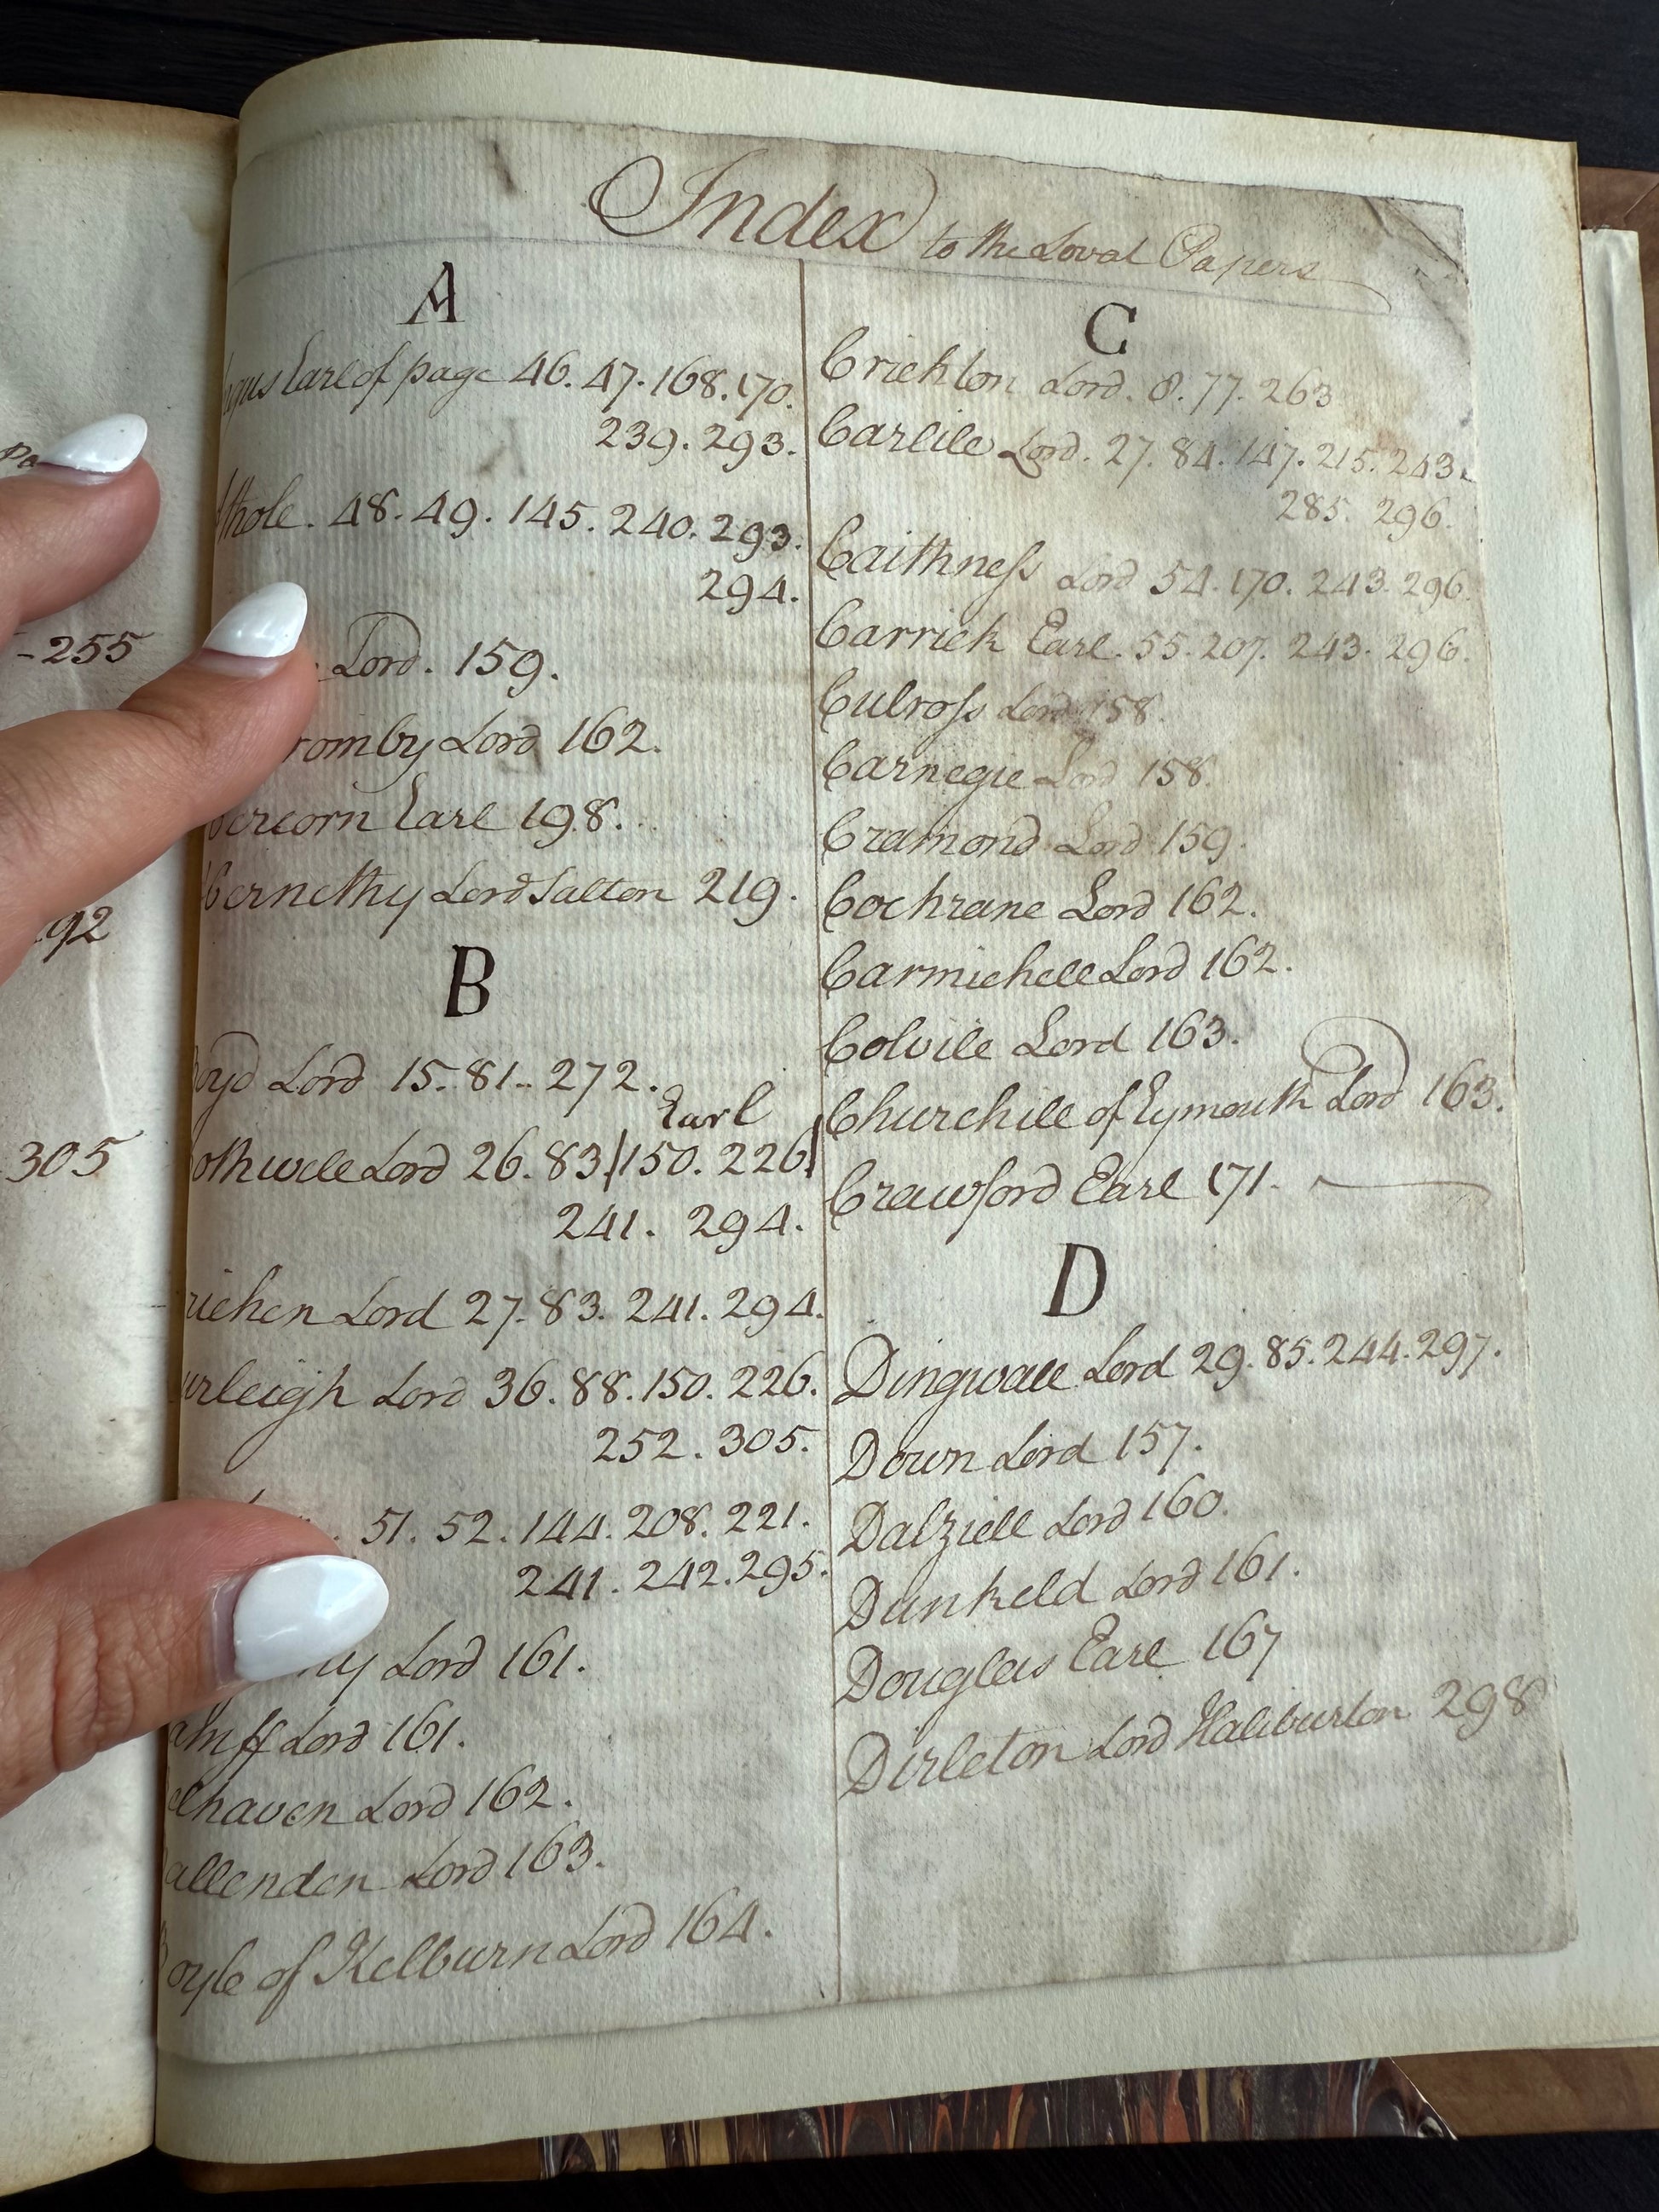 -255
92
305
Index to the Lovat Papers
A
gus Earl of page 46. 47. 168. 170.
239. 293.
thole. 48. 49. 145. 240. 293.
294.
Lord. 159.
romby Lord 162.
ercorn Earl 198.
bernethy Lord Salton 219.
B
oyd Lord 15. 81. 272.
Earl
othwell Lord 26. 83.|150. 226|
241. 294.
richen Lord 27. 83. 241. 294.
urleigh Lord 36. 88. 150. 226.
252. 305.
51. 52. 144. 208. 221.
241. 242. 295.
ny Lord 161.
amff Lord 161.
elhaven Lord 162.
allenden Lord 163.
Boyle of Kelburn Lord 164.
C
Crichton Lord. 8. 77. 263
Carlile Lord. 27. 84. 147. 215. 243.
285. 296.
Caithneſs Lord 54. 170. 243. 296.
Carrick Earl. 55. 207. 243. 296.
Culroſs Lord 158.
Carnegie Lord 158.
Cramond Lord 159.
Cochrane Lord 162.
Carmichell Lord 162.
Colvile Lord 163.
Churchill of Eymouth Lord 163.
Crawford Earl 171.
D
Dingwall Lord 29. 85. 244. 297.
Down Lord 157.
Dalziell Lord 160.
Dunkeld Lord 161.
Douglas Earl 167
Dirleton Lord Haliburton 298